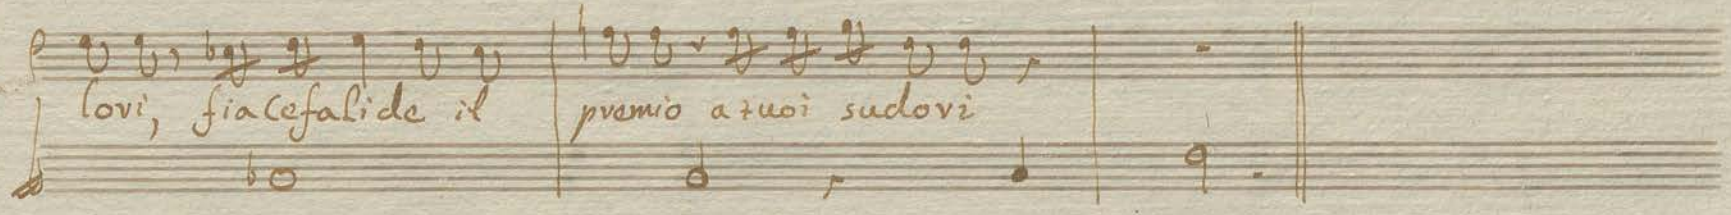 lori, fia Cefalide il premio a tuoi sudori